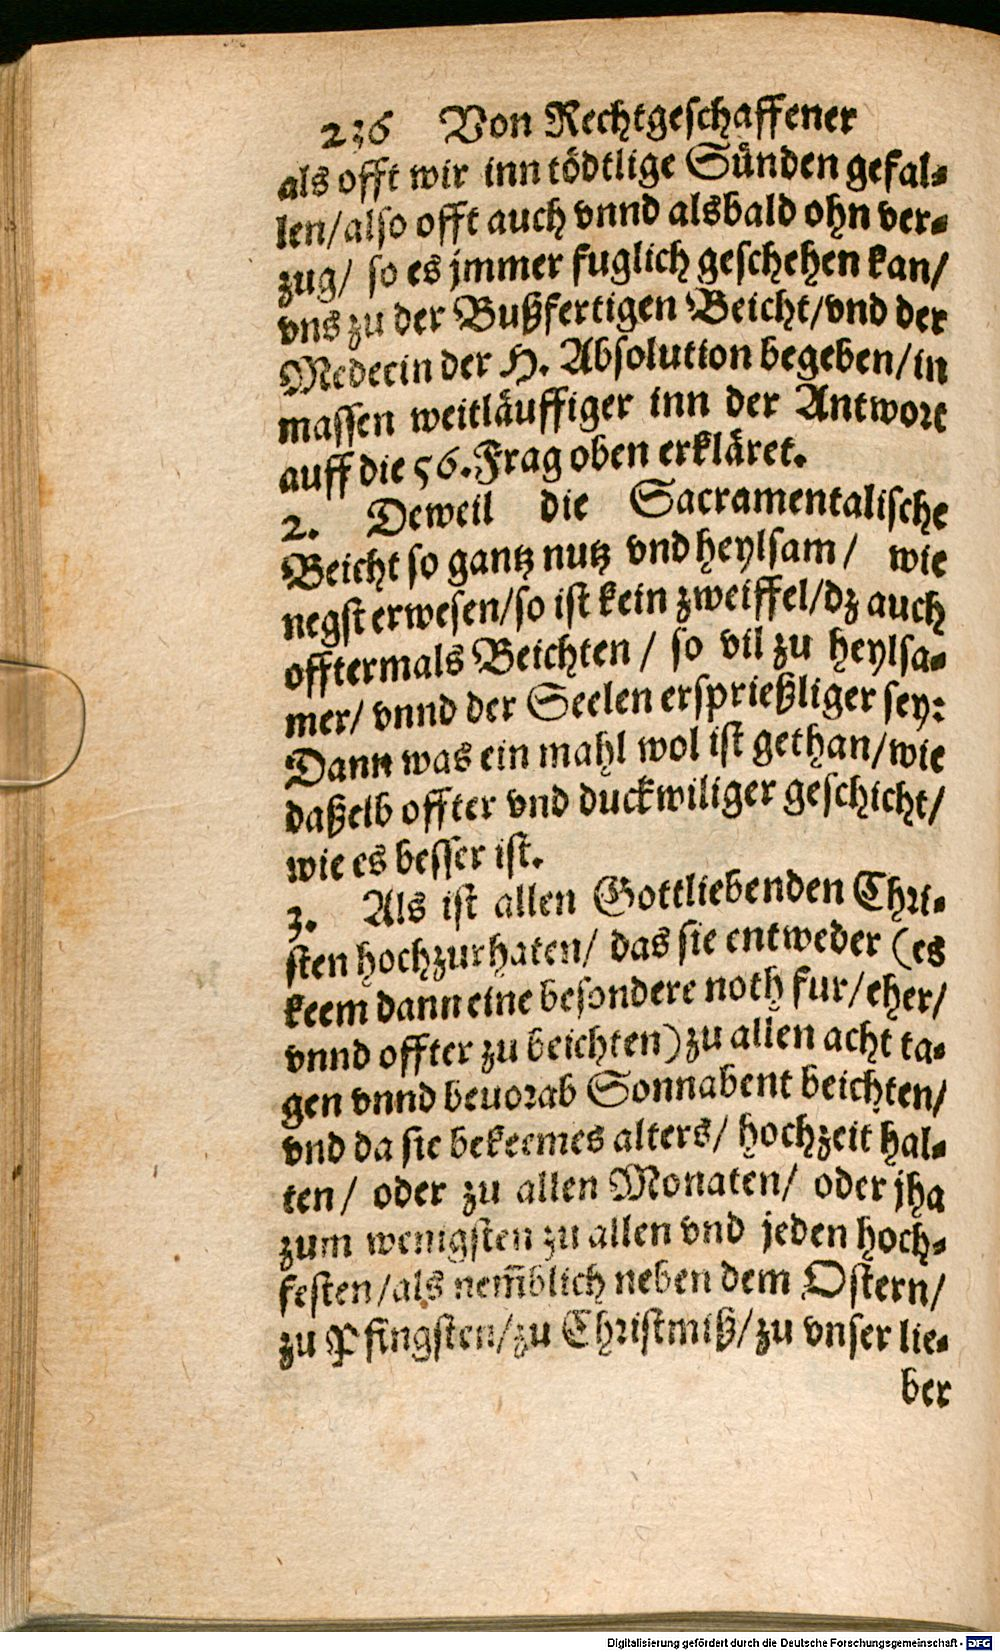 236 Von Rechtgeschaffener
als offt wir inn tödtlige Sünden gefal-
len/ also offt auch vnnd alsbald ohn ver-
zug/ so es jmmer fuglich geschehen kan/
vns zu der Bußfertigen Beicht/ vnd der
Medecin der H. Absolution begeben/ in
massen weitläuffiger inn der Antwort
auff die 56. Frag oben erkläret.
2. Deweil die Sacramentalische
Beicht so gantz nutz vnd heylsam/ wie
negst erwesen/ so ist kein zweiffel/ dz auch
offtermals Beichten/ so vil zu heylsa-
mer/ vnnd der Seelen ersprießliger sey:
Dann was ein mahl wol ist gethan/ wie
daßelb offter vnd duckwiliger geschicht/
wie es besser ist.
3. Als ist allen Gottliebenden Chri-
sten hochzurhaten/ das sie entweder (es
keem dann eine besondere noth fur/ eher/
vnnd offter zu beichten) zu allen acht ta-
gen vnnd beuorab Sonnabent beichten/
vnd da sie bekeemes alters/ hochzeit hal-
ten/ oder zu allen Monaten/ oder jha
zum wenigsten zu allen vnd jeden hoch-
festen/ als nem̃blich neben dem Ostern/
zu Pfingsten/ zu Christmiß/ zu vnser lie-
ber
Digitalisierung gefördert durch die Deutsche Forschungsgemeinschaft - DFG